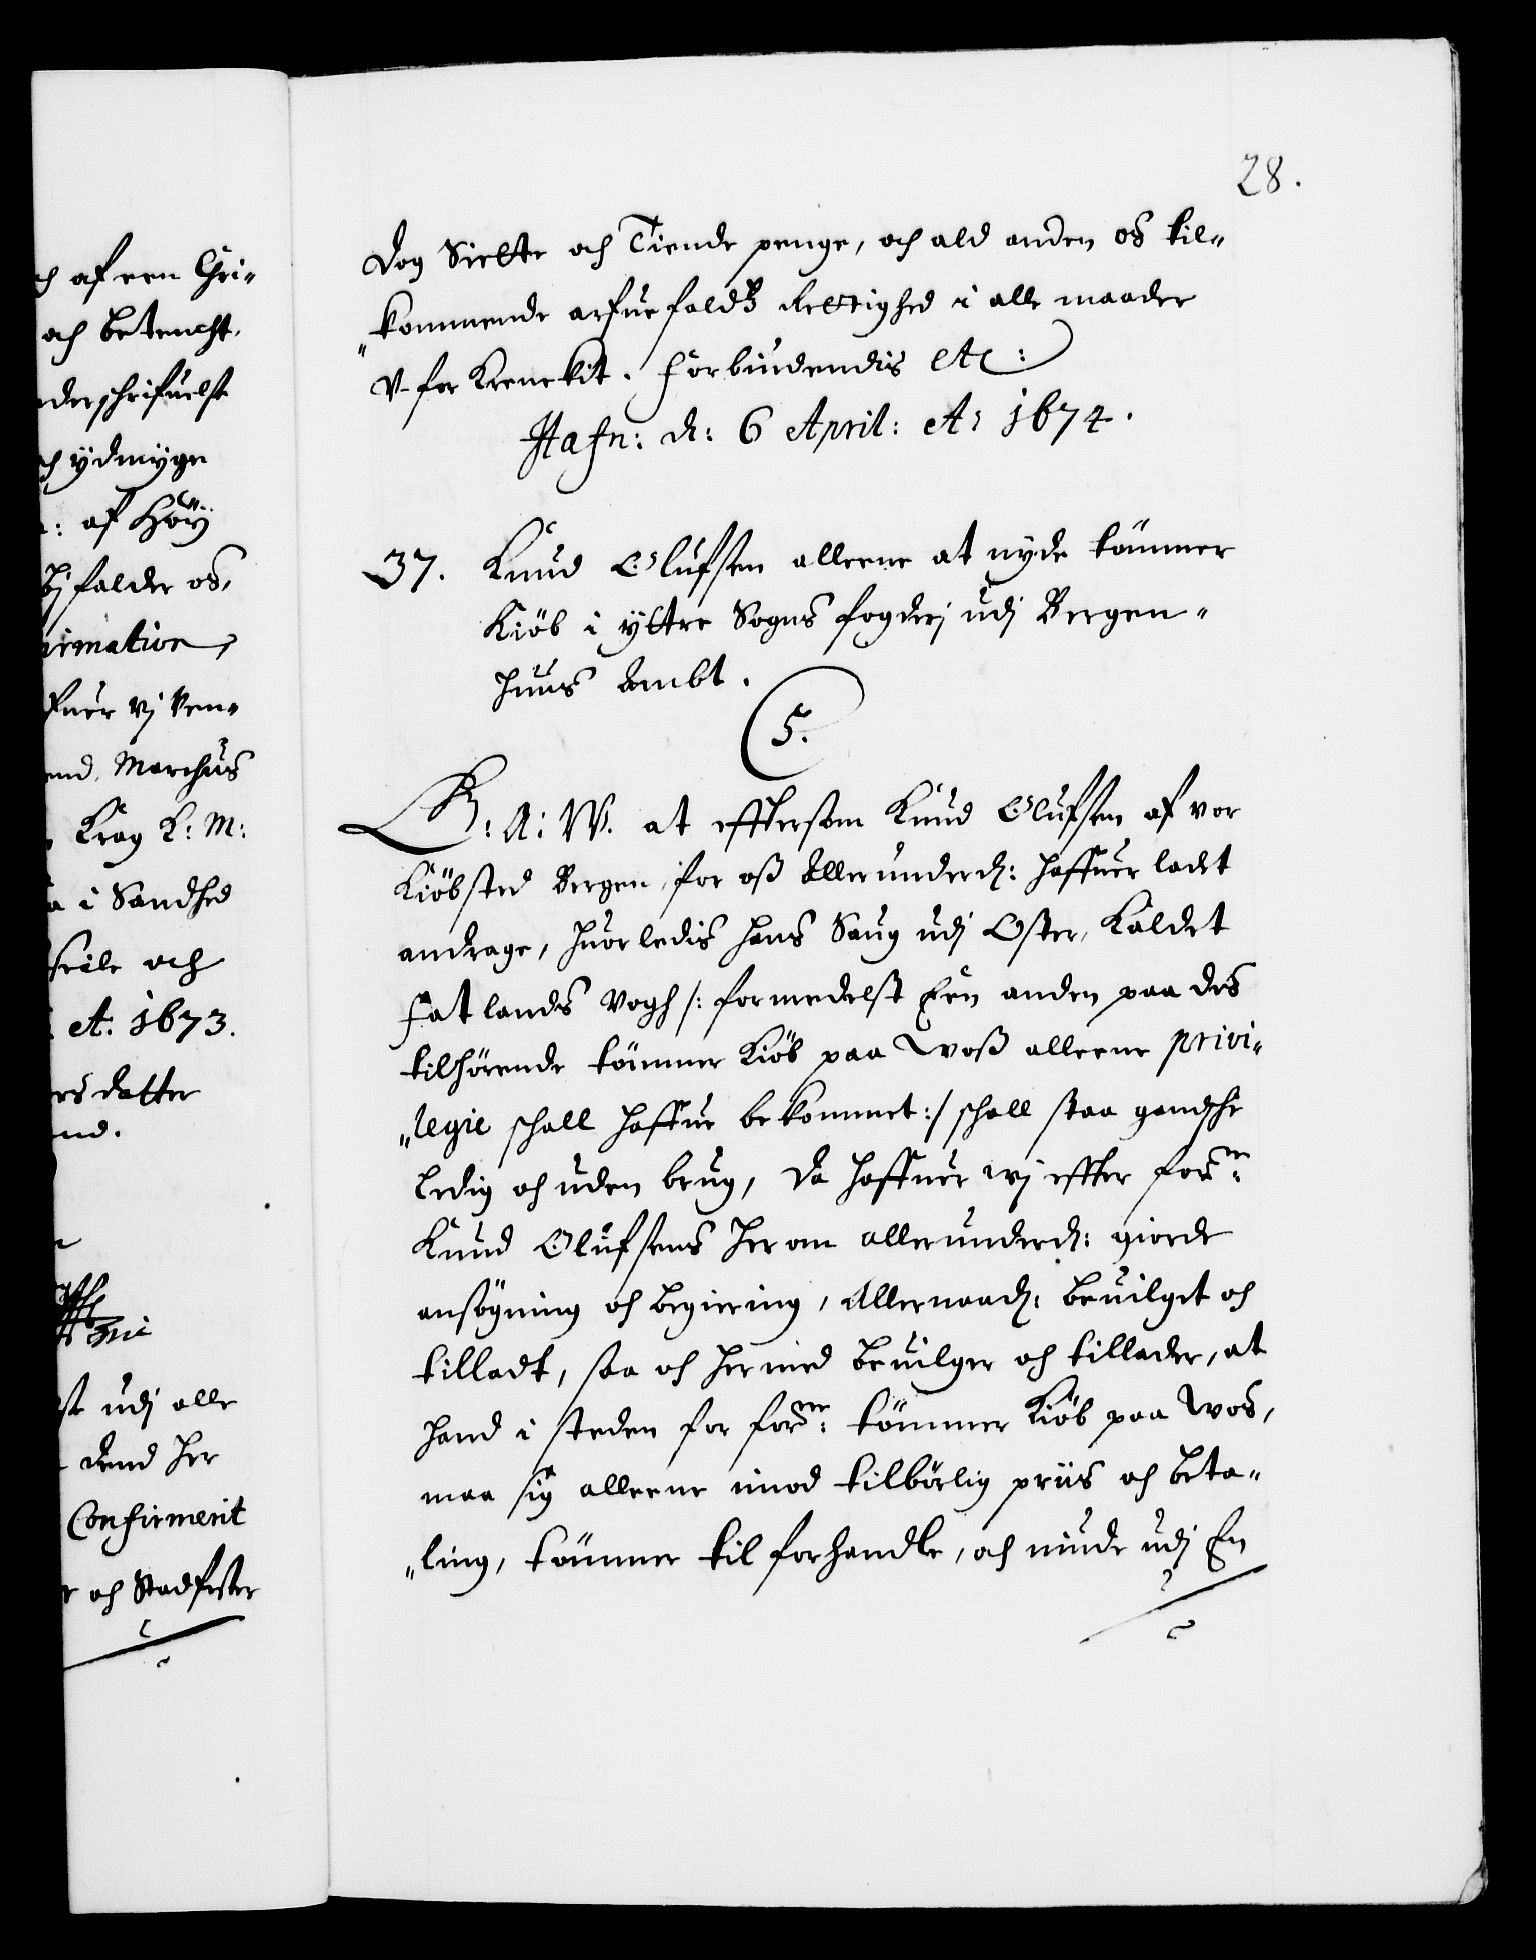 28.
Dog Siette och Tiende penge, och ald anden os til-
"kommende arfuefaldz Rettighed i alle maader
V-for Krenckit. Forbiudendis etc:
Hafn: d: 6 April: A: 1674.
37. Knud Olufsen alleene at nyde tömmer
Kiöb i yttre Sogns fogderj udj Bergen-
huus Ambt.
5.
G: A: W. at effterson Knud Olufsen af vor
Kiöbsted Bergen, for oß Allerunderd: haffuer ladet
andrage, huorledis hans Saug udj Oster, Kaldet
Fatlands Vogh /: formedelst Een anden paa des
tilhörende tömmer Kiöb paa Woß alleene privi-
"legie schall haffue bekommet :/ schall staa gandsche
ledig och uden brug, Da haffuer wj effter forne:
Knud Olufsens herom allerunderd: giorde
ansögning och begiering, Allernaad: beuilget och
tilladt, saa och hermed beuilger och tillader, at
hand i steden for forne: tömmer Kiöb paa Wos,
maa sig alleene imod tilbörlig priis och beta-
"ling, tömmer til forhandle, och niude udj En
ch af een Chri-
och betencht,
derschrifuelse
ch ydmyge
: af Höy
bifalder os,
irmation,
fuer vj Ven-
end, Marchus
Krag K: M:
a i Sandhed
seile och
A: 1673.
ers datter
nd.
st udj alle
dend her
Confirmerit
r och Stadfester